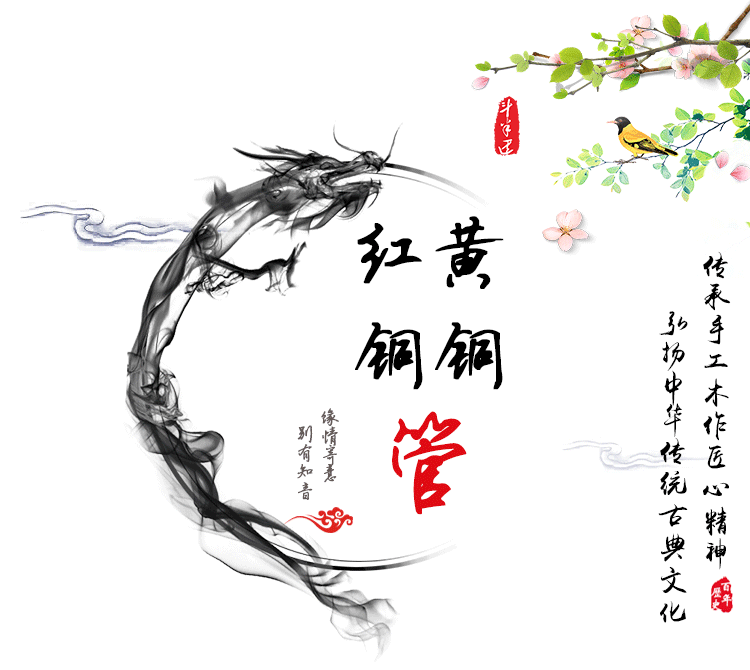 黄铜
红铜
管
缘情寄意
别有知音
传承手工木作匠心精神
弘扬中华传统古典文化
百年
歷史